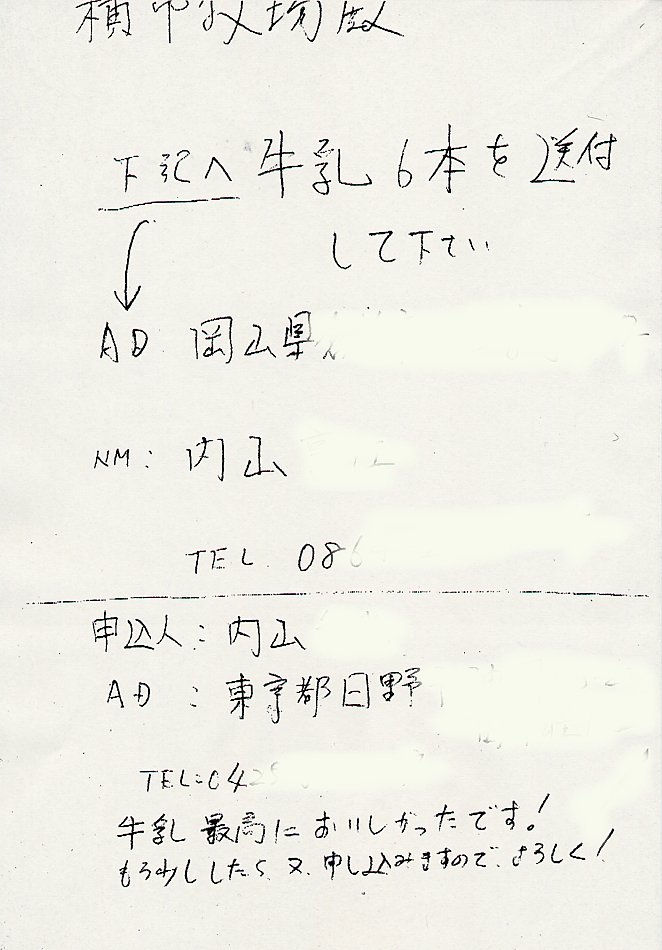 牧場殿
下記へ 牛乳 6本を送付
して下さい
AD 岡山県
NM: 内山
TEL. 086
申込人: 内山
AD : 東京都日野
TEL: 042
牛乳 最高に おいしかったです!
もう少ししたら 又、申し込みますので、よろしく!